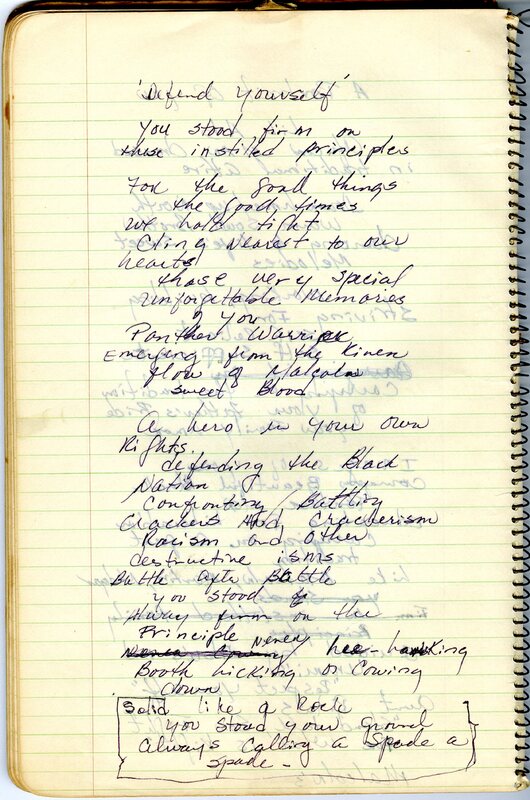 'Defend Yourself'
You stood firm on
those instilled principles
For the good things
the good times
We hold tight
Cling nearest to our
hearts
those very special
Unforgettable Memories
of you
Panther Warrior
Emerging from the
flow of Malcolm
sweet Blood
A hero in your own
Rights.
defending the Black
Nation
Confronting / Battling
Crackers And Crackerism
Racism and other
destructive isms
Battle after Battle
you stood
Always firm on the
Principle
Never
Booth licking or Cowing
down
Solid like a Rock
You stood your Ground
Always calling a Spade a
spade -